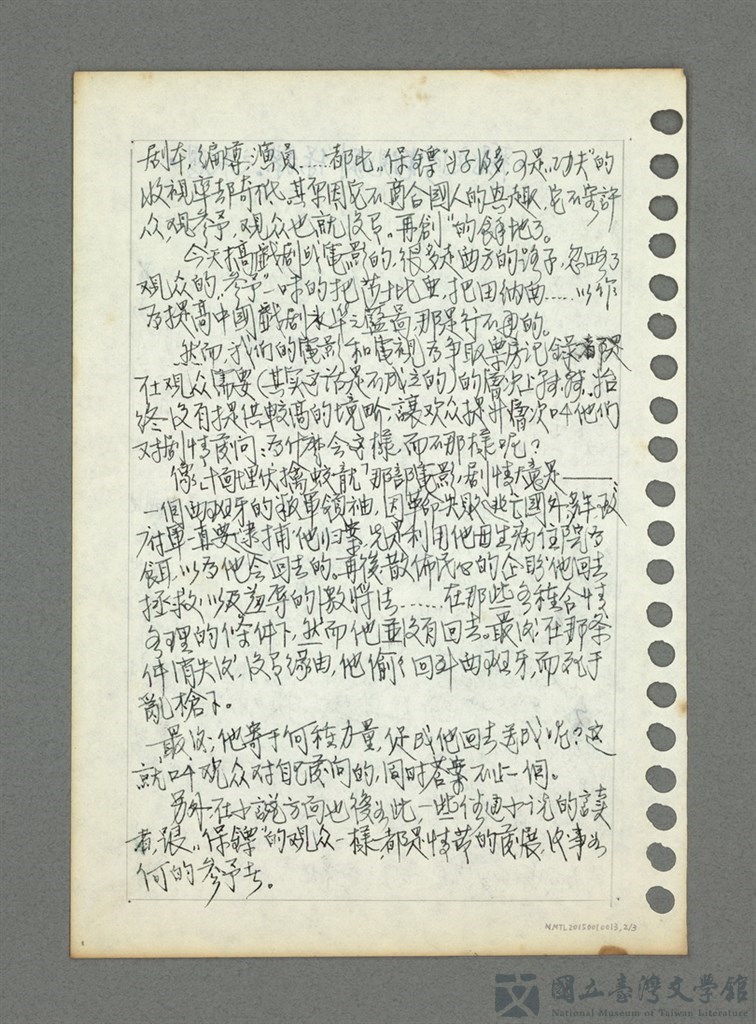 剧本,編導,演員……都比"保鏢"好得多,可是"功夫"的
收視率却奇低,其原因它不適合國人的興趣,它不容許
众观参予,观众也就沒有"再創"的餘地了。
今天搞戲剧或電影的,很多走西方的路子,忽略了
观众的"参予"一味的把莎士比亜,把田納西……以作
为提高中國戲剧水準之藍圖,那是行不通的。
然而,我们的電影和電視为爭取票房记錄都是
在观众需要(其实这话是不成立的)的層次上
终沒有提供較高的境界,讓欢众提升層次叫他们
对剧情度问:为什麽会这樣,而不那樣呢?
像「十面埋伏擒蛟龍」那部電影,剧情大意是——
一個西班牙的叛軍領袖,因革命失敗逃亡國外多年政
府軍一直要逮捕他归案,先是利用他母生病住院为
餌,以为他会回去的。再後散佈民心的企盼他回去
拯救,以及羞辱的激將法……在那些各種合情
合理的條件下,然而他並沒有回去。最後;在那条
件消失後,沒有缘由,他偷偷回到西班牙,而死于
亂槍下。
最後;他等于何種力量,促成他回去送死呢?这
就叫观众对自己度问的,同时答案不止一個。
另外,在小說方面也復如此,一些偵通小说的讀
者,跟"保鏢"的观众一樣,都是情节的發展,
何的参予去。
NMTL20150010013,2/3
國立臺灣文學館
National Museum of Taiwan Literature